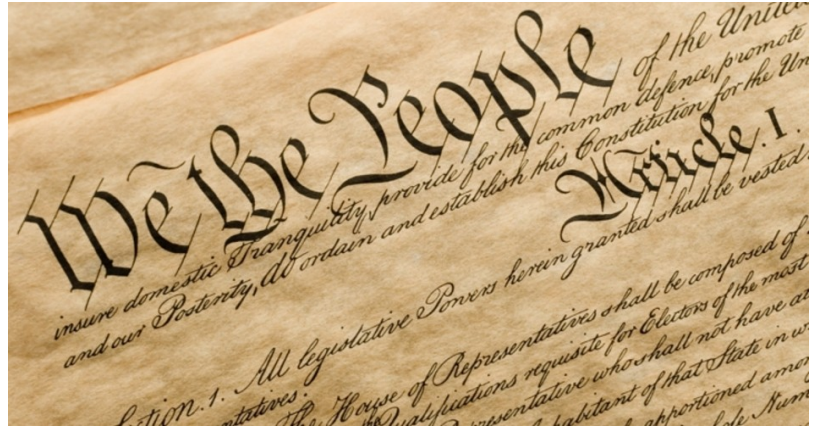 We the People of the United
insure domestic Tranquility, provide for the common defence, promote
and our Posterity, do ordain and establish this Constitution for the Un
Article. I.
ction. 1. All legislative Powers herein granted shall be vested
ntatives.
the House of Representatives shall be composed of
Qualifications requisite for Electors of the most
resentative who shall not have at
habitant of that State in w
apportioned amon
ole Num